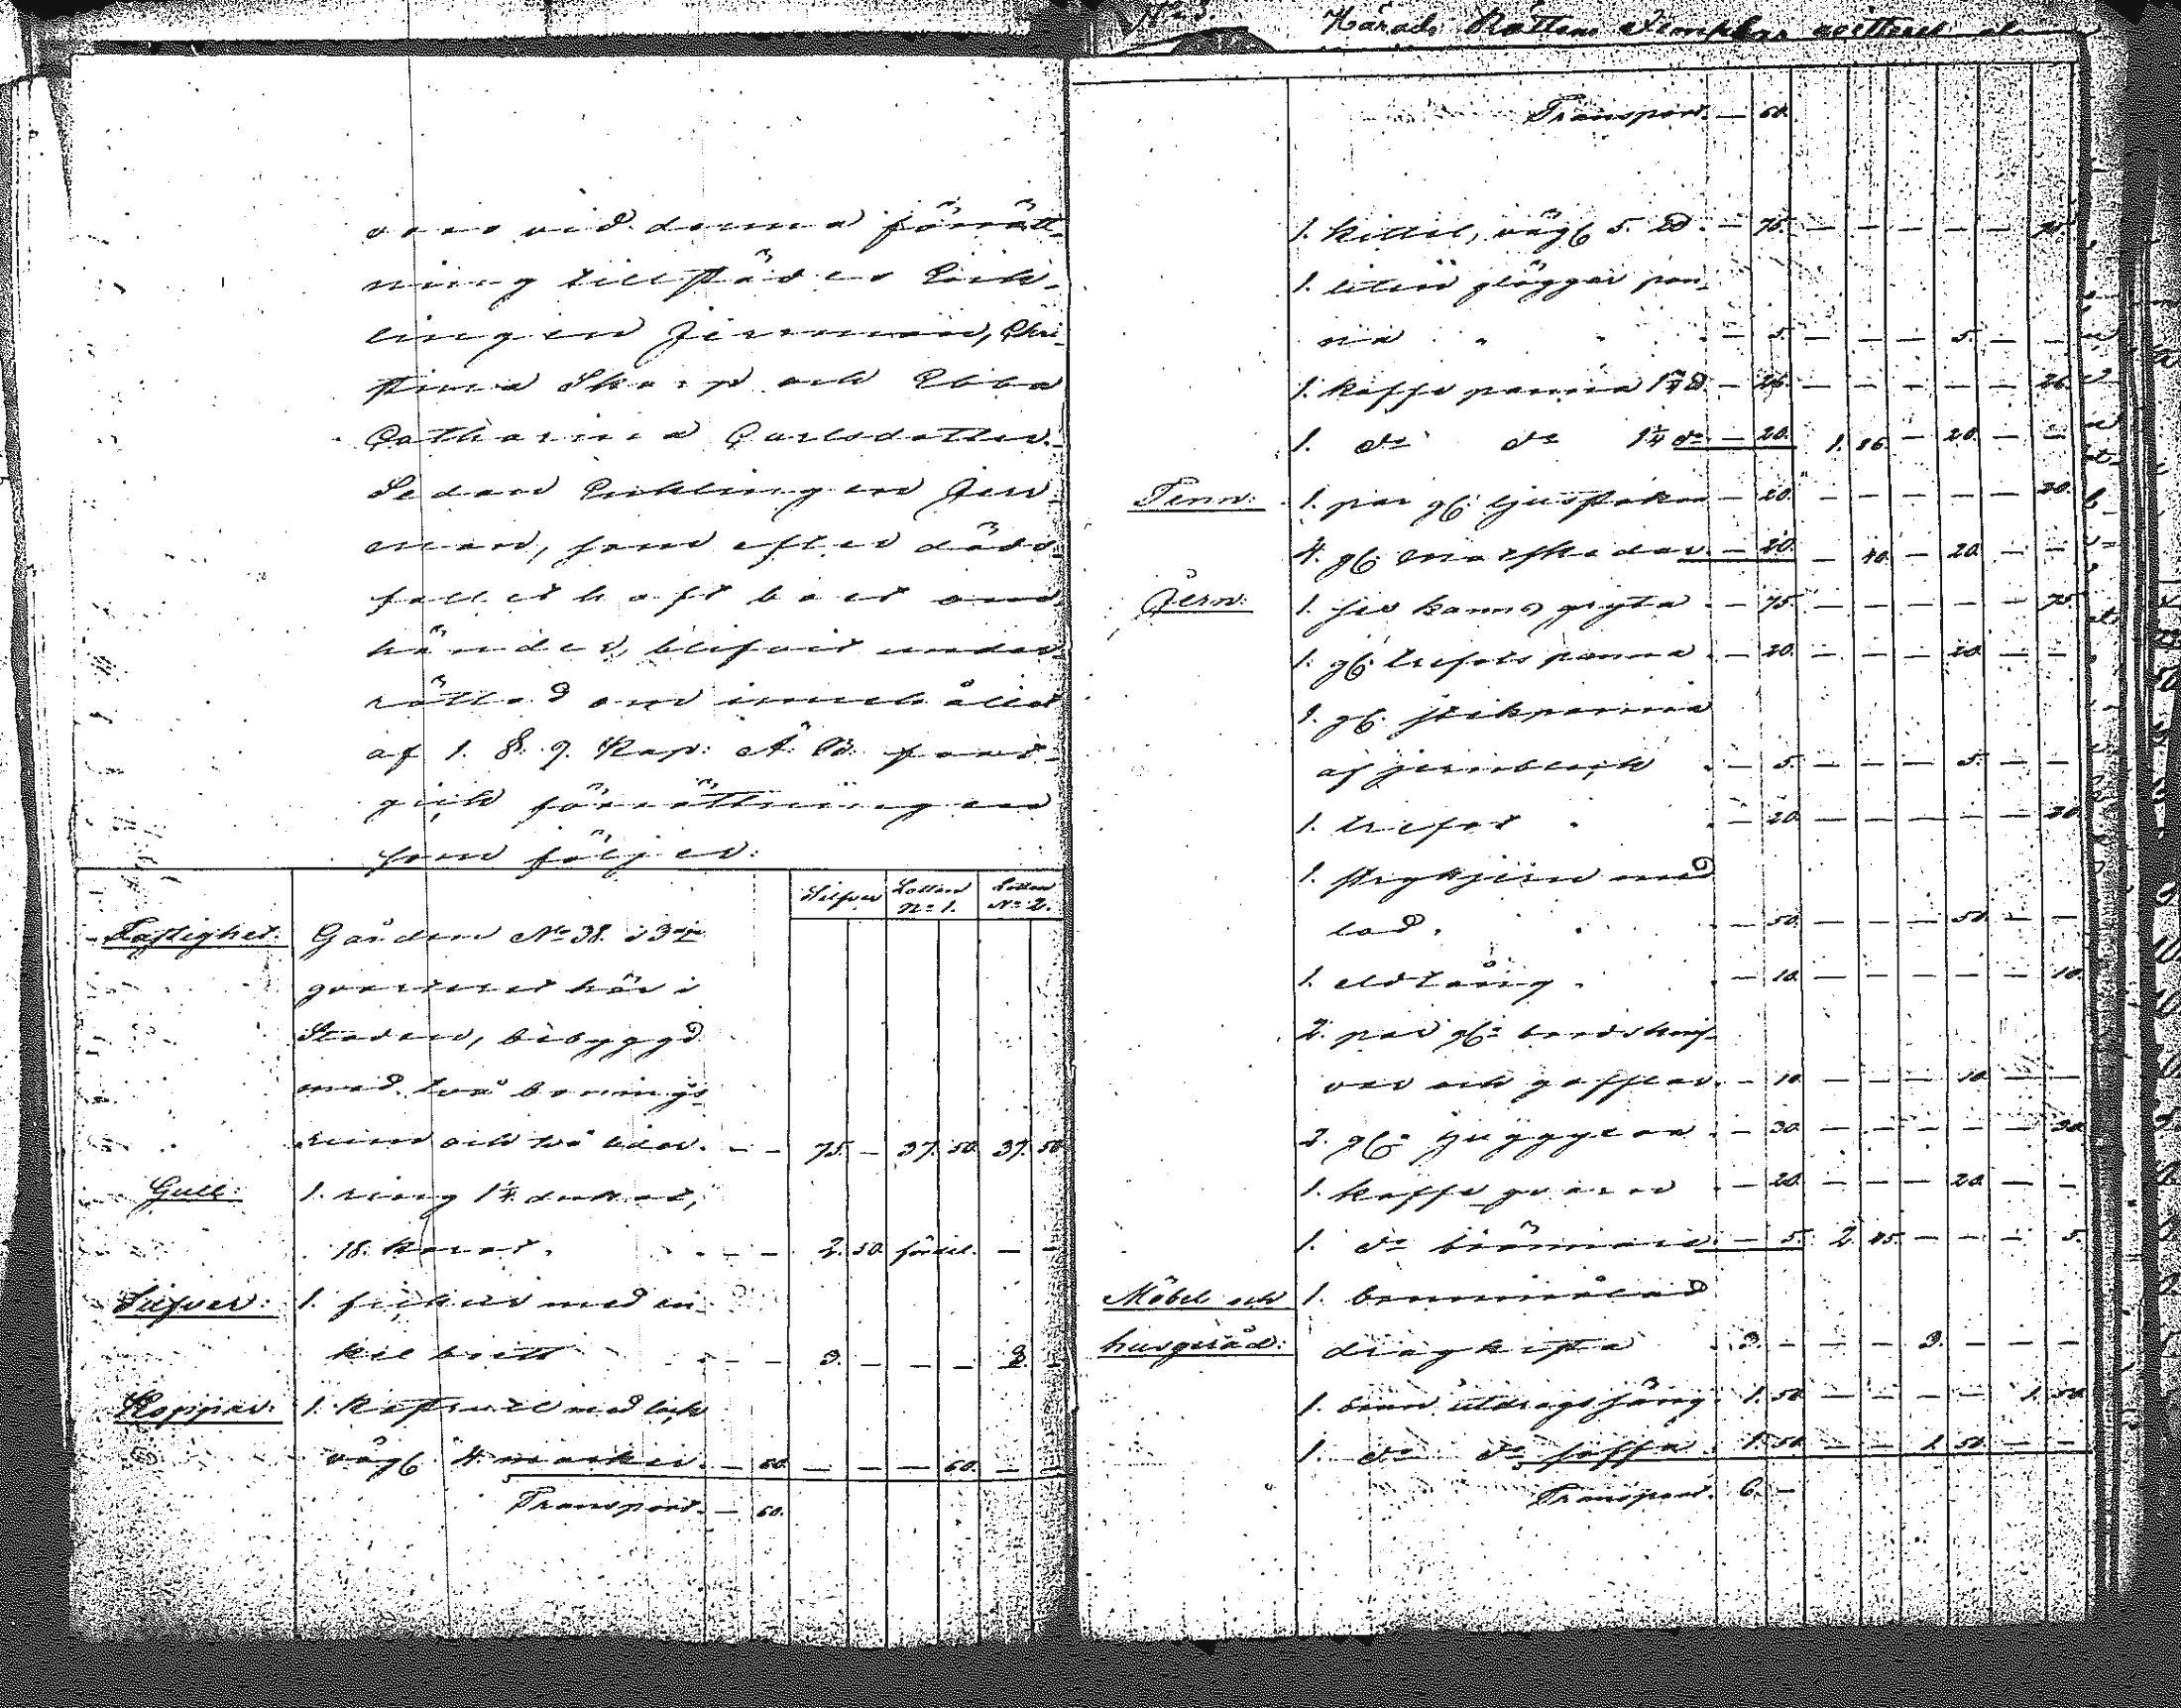 voro vid denna förrätt-
ning tillstädes Enk-
lingen Jernman, Chri-
stina Skarp och Ebba
Catharina Carlsdotter.
Sedan Enklingen Jern-
man, som efter döds-
fallet haft boet om-
händer, blifvit under-
rättad om innehållet
af 1. §. 9. Kap: Ä. B. fort-
gick förrättningen
som följer:
Silfver Lotten N:o 1. Lotten N:o 2.
Fastighet: Gården N:o 38. i 3:dje
qvarteret här i
Staden, bebyggd
med två bonings
rum och två bodar. - - 75. - 37. 50. 37. 50.
Gull: 1. ring 1¼ dukat,
18. karat. - - 2. 50. fördel. - -
Silfver: 1. sickur med en-
kel boett - - 3. - - - 3. -
Koppar: 1. kastrull med lock
väg. 4. marker. - 60. - - - 60. - -
Transport. - 60.
N:o 3. Härads Rättens
Transport. - 60.
1. kittel, väg. 5. ℔. - 75. - - - - - 75.
1. liten glöggar pan-
na - 5. - - - 5. - -
1. kaffe panna 1¾ ℔. - 26. - - - - - 26.
1. d:o d:o 1¼ d:o - 20. 1. 86. - 20. - -
Tenn: 1. par gl. ljusstakar - 20. - - - - - 20.
4. gl. matskedar. - 20. - 40. - 20. - -
Jern: 1. sex kanns gryta - 75. - - - - - 75.
1. gl. trefots panna. - 20. - - - 20. - -
1. gl. stekpanna
af jernbleck - 5. - - - 5. - -
1. trefot - 20. - - - - - 20.
1. strykjern med
lod. - 50. - - - 50. - -
1. eldtång. - 10. - - - - - 10.
2. par gl. bordsknif-
var och gafflar. - 10. - - - 10. - -
2. gl. - 30. - - - - - 30.
1. kaffe qvarn - 20. - - - 20. - -
1. d:o brännare. - 5. 2. 45. - - - 5.
Möbel och 1. brunmålad
husgeråd: dragkista 3. - - - 3. - - -
1. brun utdragssäng. 1. 50. - - - - 1. 50.
1. d:o d:o soffa. 1. 50. - - 1. 50. - -
Transport. 6. -